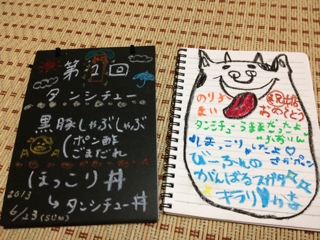 第1回
タンシチュー
黒豚しゃぶしゃぶ
ポン酢
ごまだれ
ほっこり丼
↳タンシチュー丼
2013
6/23(SUN)
のりろー
まい
出店
おめでとう
タンシチューうままだったよ
ほっこりしたよ♡
びーちゃんの
がんばるスガタ
キラリ